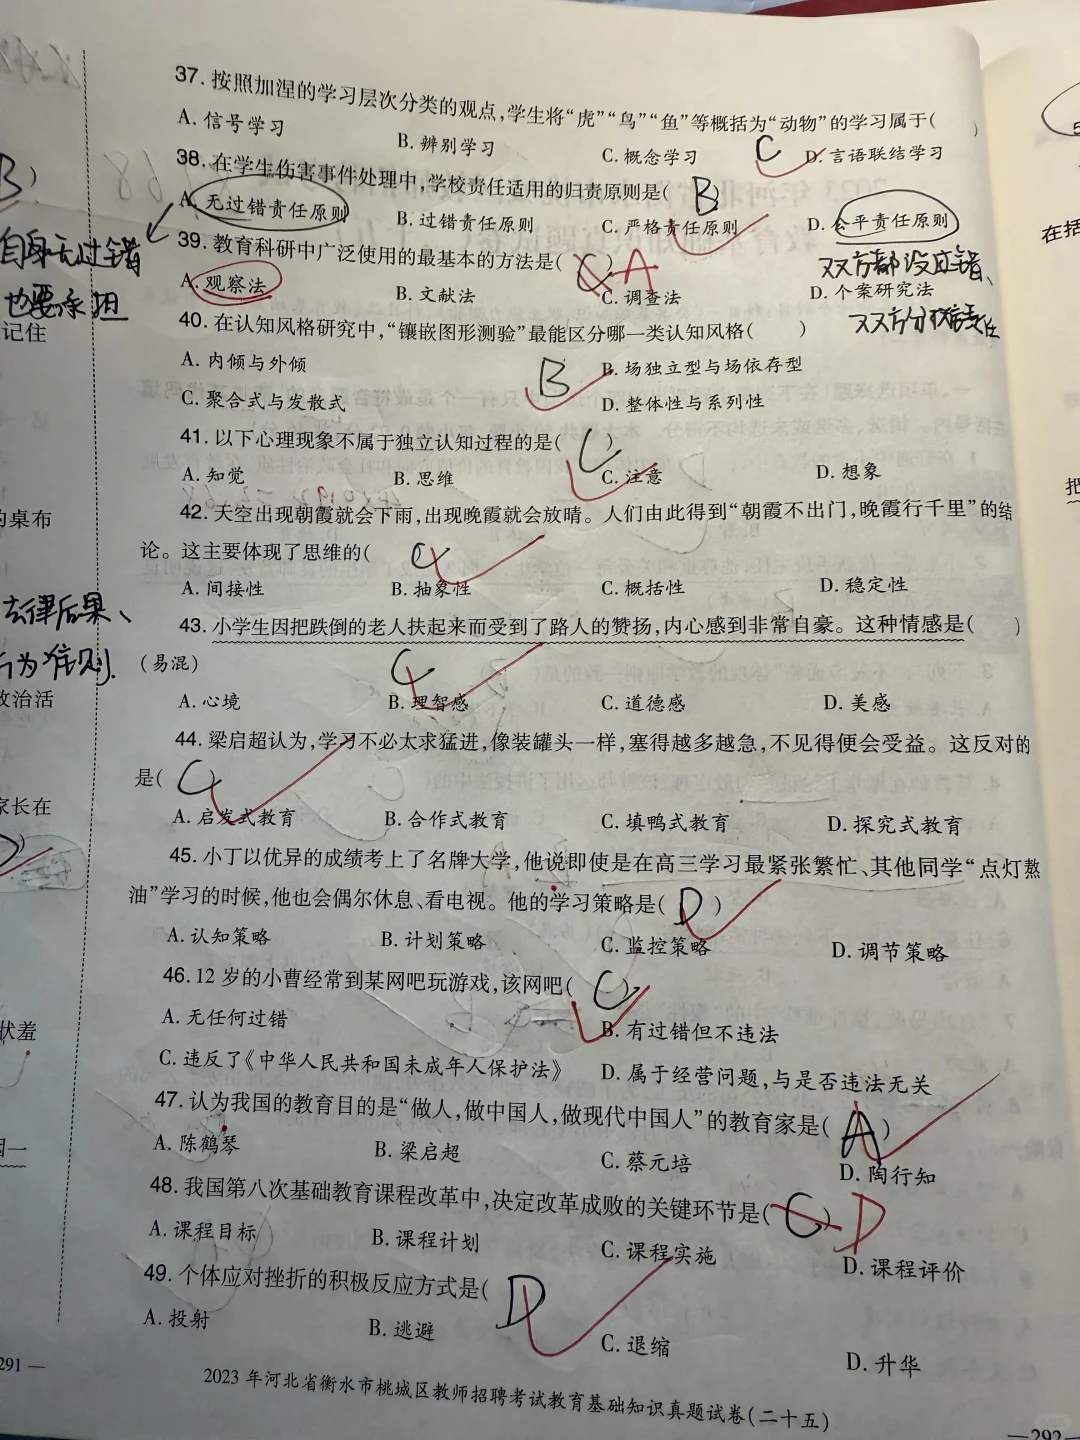 37. 按照加涅的学习层次分类的观点,学生将“虎”“鸟”“鱼”等概括为“动物”的学习属于( C )
A. 信号学习 B. 辨别学习 C. 概念学习 D. 言语联结学习
38. 在学生伤害事件处理中,学校责任适用的归责原则是( B )
A. 无过错责任原则 B. 过错责任原则 C. 严格责任原则 D. 公平责任原则
自身无过错
也要承担
双方都没过错、
双方分担责任
39. 教育科研中广泛使用的最基本的方法是( C ) A
A. 观察法 B. 文献法 C. 调查法 D. 个案研究法
40. 在认知风格研究中,“镶嵌图形测验”最能区分哪一类认知风格( )
A. 内倾与外倾 B. 场独立型与场依存型
B
C. 聚合式与发散式 D. 整体性与系列性
41. 以下心理现象不属于独立认知过程的是( C )
A. 知觉 B. 思维 C. 注意 D. 想象
42. 天空出现朝霞就会下雨,出现晚霞就会放晴。人们由此得到“朝霞不出门,晚霞行千里”的结
论。这主要体现了思维的( C
A. 间接性 B. 抽象性 C. 概括性 D. 稳定性
43. 小学生因把跌倒的老人扶起来而受到了路人的赞扬,内心感到非常自豪。这种情感是( )
(易混) C
A. 心境 B. 理智感 C. 道德感 D. 美感
44. 梁启超认为,学习不必太求猛进,像装罐头一样,塞得越多越急,不见得便会受益。这反对的
是( C
A. 启发式教育 B. 合作式教育 C. 填鸭式教育 D. 探究式教育
45. 小丁以优异的成绩考上了名牌大学,他说即使是在高三学习最紧张繁忙、其他同学“点灯熬
油”学习的时候,他也会偶尔休息、看电视。他的学习策略是( D )
A. 认知策略 B. 计划策略 C. 监控策略 D. 调节策略
46. 12 岁的小曹经常到某网吧玩游戏,该网吧( C )
A. 无任何过错 B. 有过错但不违法
C. 违反了《中华人民共和国未成年人保护法》 D. 属于经营问题,与是否违法无关
47. 认为我国的教育目的是“做人,做中国人,做现代中国人”的教育家是( A )
A. 陈鹤琴 B. 梁启超 C. 蔡元培 D. 陶行知
48. 我国第八次基础教育课程改革中,决定改革成败的关键环节是( C ) D
A. 课程目标 B. 课程计划 C. 课程实施 D. 课程评价
49. 个体应对挫折的积极反应方式是( D
A. 投射 B. 逃避 C. 退缩 D. 升华
2023 年河北省衡水市桃城区教师招聘考试教育基础知识真题试卷(二十五)
—292—
B)
记住
的桌布
法律后果、
行为准则.
政治活
家长在
状羞
291 —
在括
把